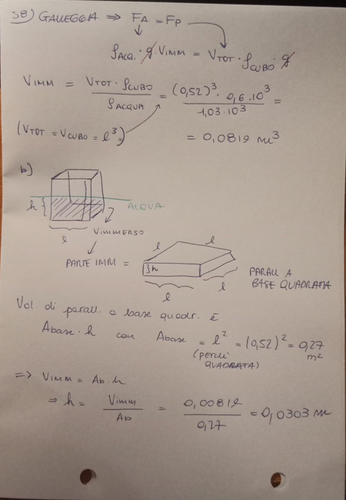 38) GALLEGGIA ⇒ FA = FP
ρACQ. · g VIMM = VTOT · ρCUBO · g
VIMM = VTOT · ρCUBO / ρACQUA = (0,52)³ · 0,6 · 10³ / 1,03 · 10³ =
(VTOT = VCUBO = l³) = 0,0819 m³
b)
h ACQUA
l VIMMERSO
PARTE IMM = h l l l l PARALL A BASE QUADRATA
Vol. di parall. a base quadr. È
Abase · h con Abase = l² = (0,52)² = 0,27 m²
QUADRATA)
⇒ VIMM = Ab · h
⇒ h = VIMM / Ab = 0,00819 / 0,27 = 0,0303 m